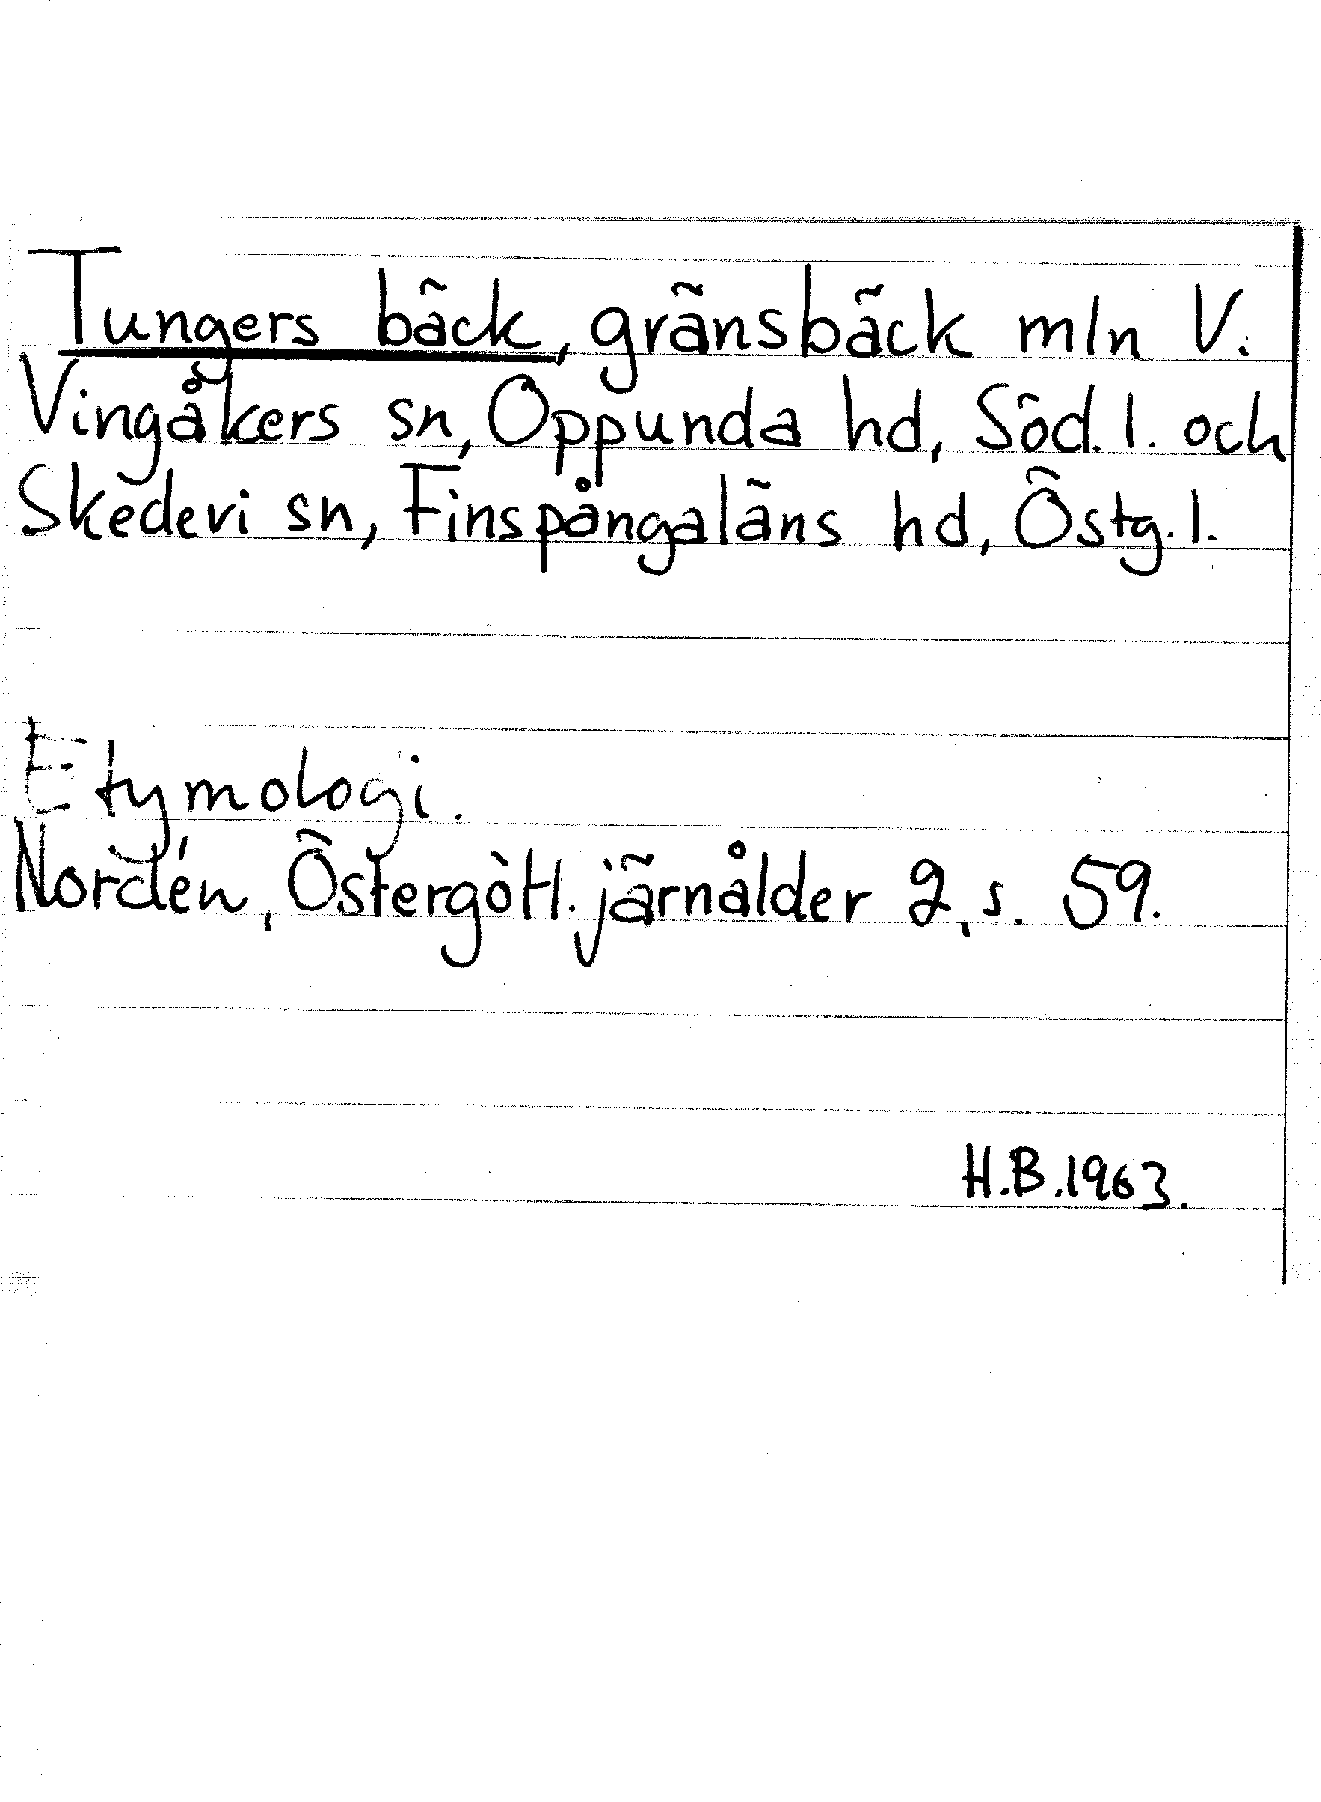 Tungers bäck, gränsbäck mln V.
Vingåkers sn, Oppunda hd, Söd. l. och
Skedevi sn, Finspångaläns hd, Östg. l.
Etymologi.
Nordén, Östergötl. järnålder 2, s. 59.
H.B. 1963.